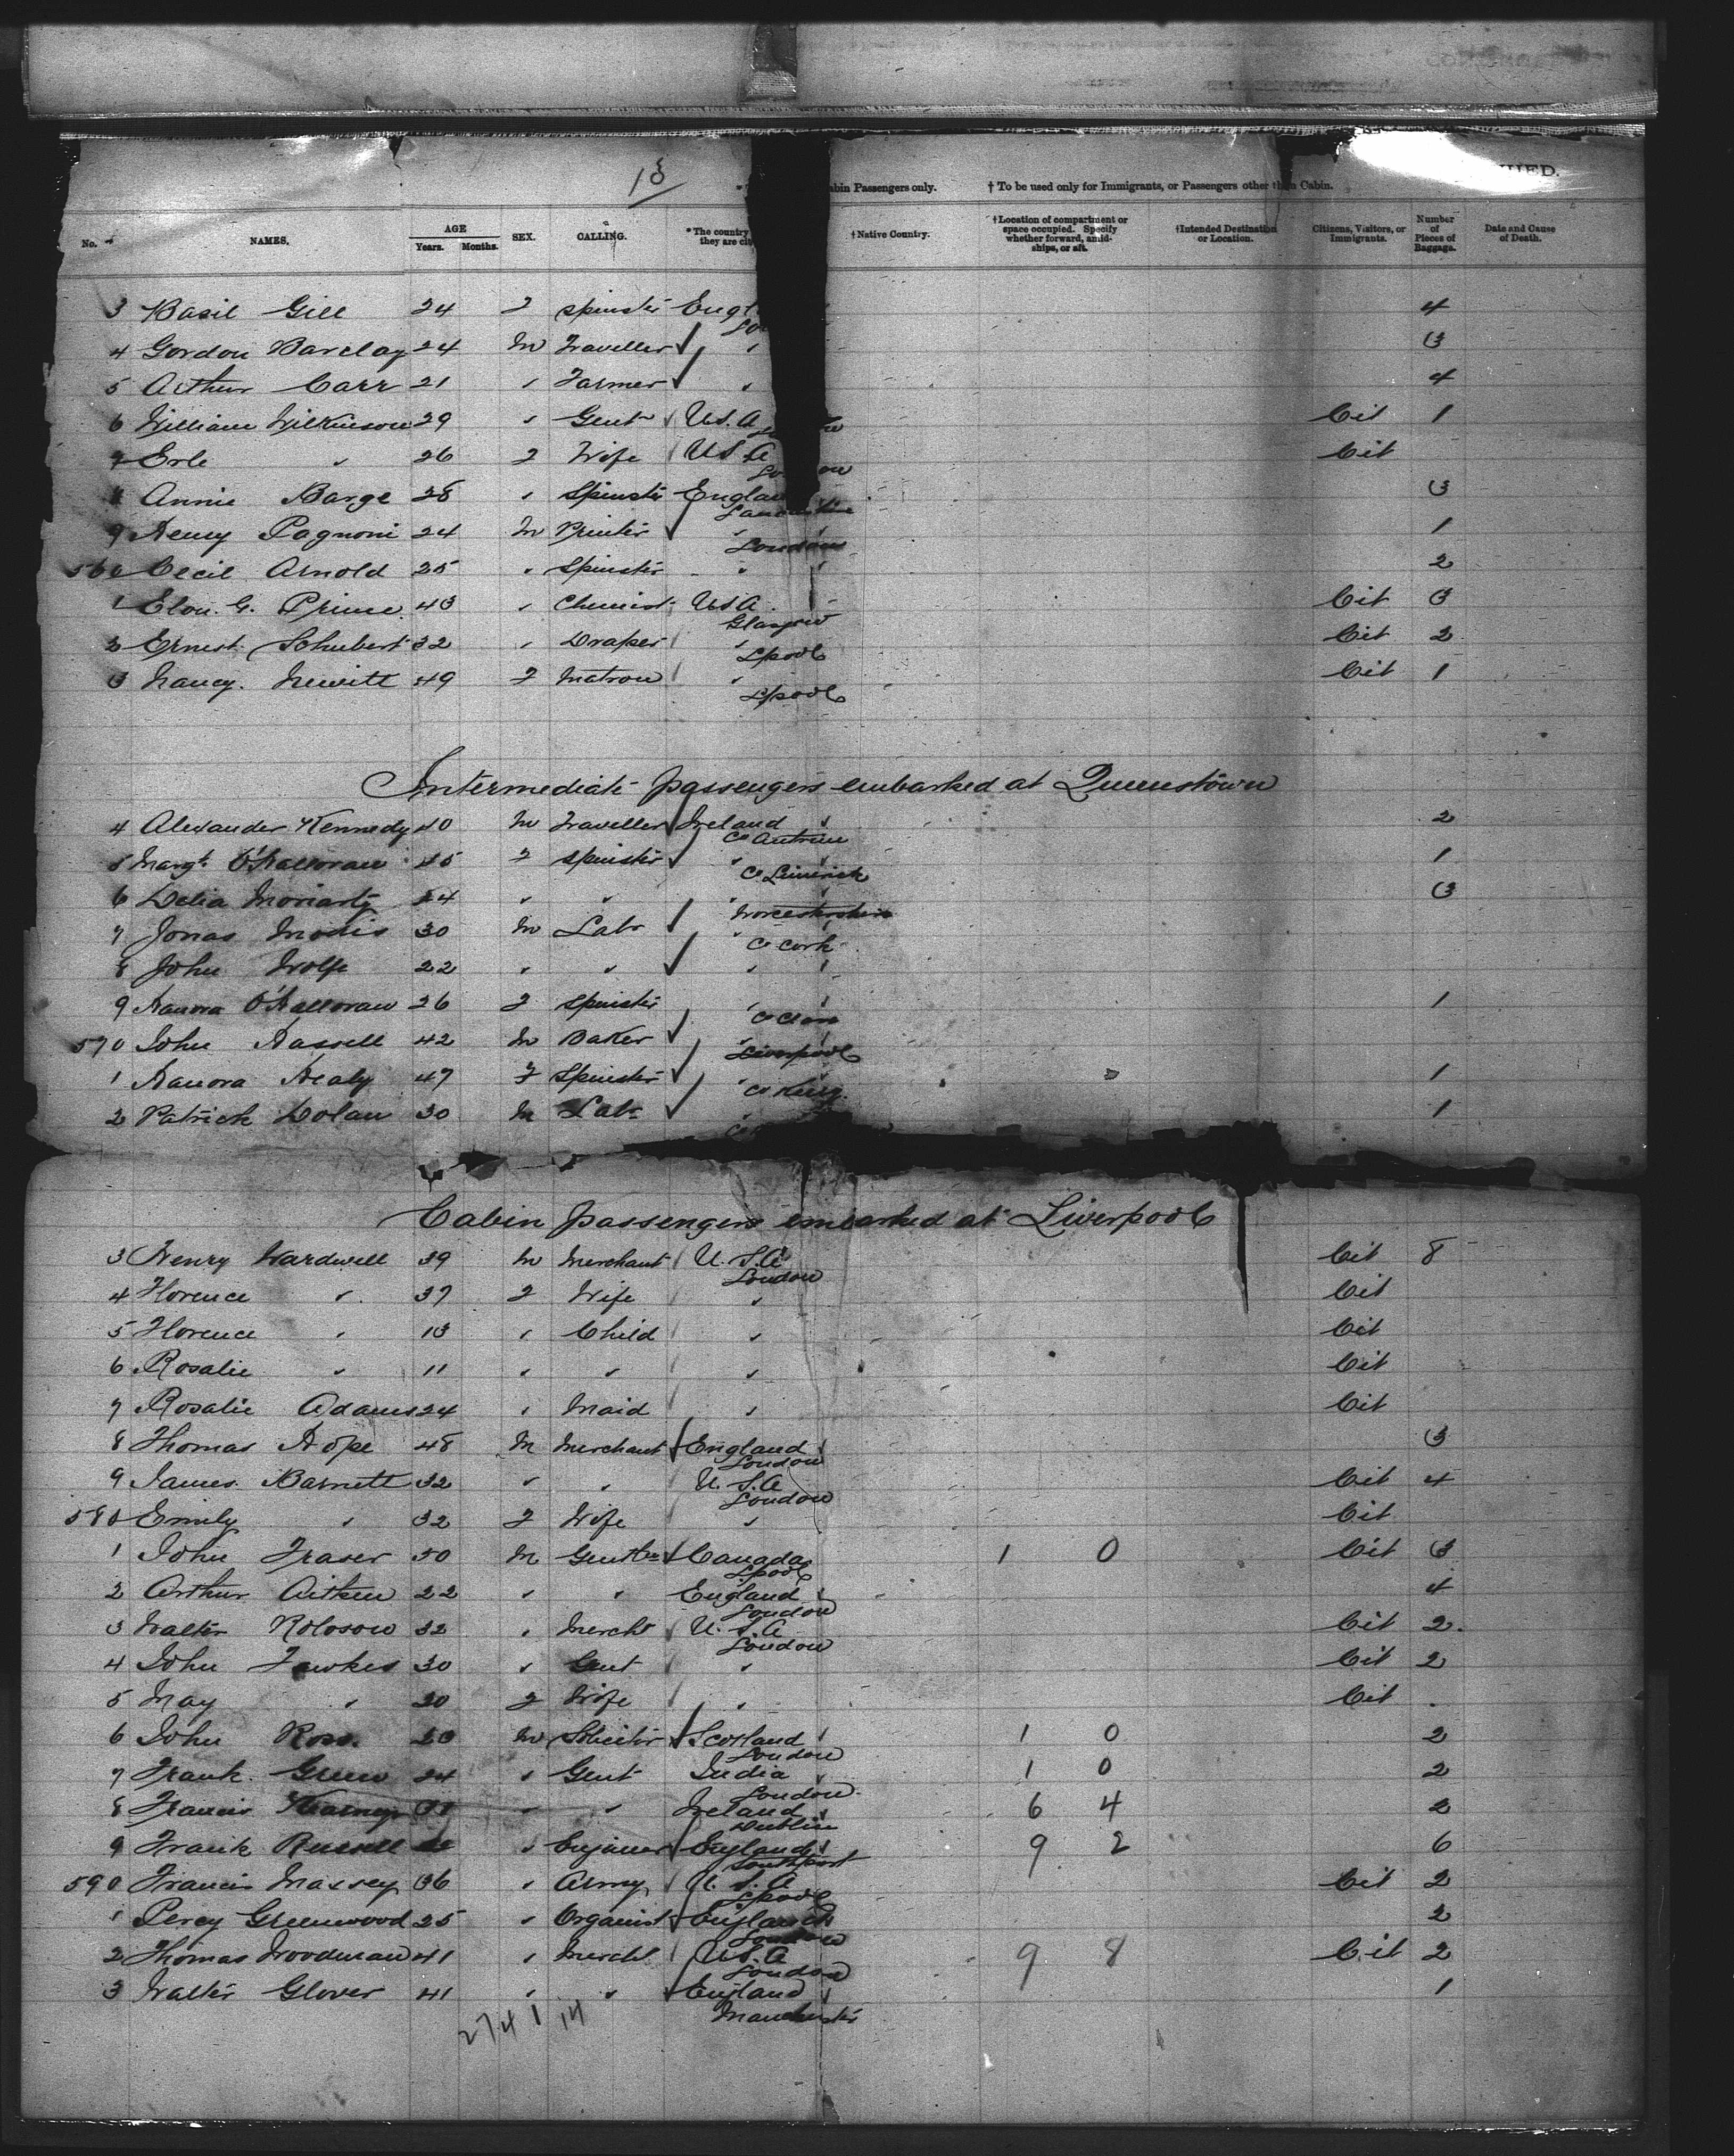 18
Cabin Passengers only. † To be used only for Immigrants, or Passengers other than Cabin.
No. NAMES. AGE Years. Months. SEX. CALLING. *The country they are †Native Country. †Location of compartment or space occupied. Specify whether forward, amidships, or aft. †Intended Destination or Location. Citizens, Visitors, or Immigrants. Number of Pieces of Baggage. Date and Cause of Death.
3 Basil Gill 24 F Spinster Engl 4
4 Gordon Barclay 24 M Traveller " 3
5 Arthur Carr 21 " Farmer " 4
6 William Wilkinson 29 " Gent U.S.A Cit 1
7 Erle " 26 F Wife U.S.A Cit
8 Annie Barge 28 " Spinster Englan 3
Lancashire
9 Henry Pagnoni 24 M Printer " 1
London
560 Cecil Arnold 25 " Spinster " 2
1 Elon. G. Prime 43 " Chemist U.S.A. Cit 3
Glasgow
2 Ernest Schubert 32 " Draper " Cit 2
Lpool
3 Nancy. Hewitt 49 F Matron " Cit 1
Lpool
Intermediate passengers embarked at Queenstown
4 Alexander Kennedy 40 M Traveller Ireland 2
Co Antrim
5 Margt. O'Halloran 45 F Spinster " 1
Co Limerick
6 Delia Moriarty 24 " " " 3
Worcestershire
7 Jonas 30 M Labr "
Co Cork
8 John Wolfe 22 " " "
9 Hanora O'Halloran 26 F Spinster " 1
Co Clare
570 John Hassell 42 M Baker "
Liverpool
1 Hanora Healy 47 F Spinster " 1
Co Kerry
2 Patrick Dolan 30 M Labr " 1
Cabin passengers embarked at Liverpool
3 Henry Wardwell 39 M Merchant U.S.A Cit 8
London
4 Florence " 37 F Wife " Cit
5 Florence " 13 " Child " Cit
6 Rosalie " 11 " " " Cit
7 Rosalie Adams 24 " Maid " Cit
8 Thomas Hope 48 M Merchant England 3
London
9 James Barnett 32 " " U.S.A Cit 4
London
580 Emily " 32 F Wife " Cit
1 John Fraser 50 M Gentln Canada 1 0 Cit 3
Lpool
2 Arthur Aitken 22 " " England 4
London
3 Walter Roloson 32 " Mercht U.S.A Cit 2.
London
4 John Fawkes 30 " Gent " Cit 2
5 May " 20 F Wife " Cit
6 John Ross. M Solicitor Scotland 1 0 2
London
7 Frank. Green 24 " Gent India 1 0 2
London
8 Francis " " Ireland 6 4 2
Dublin
9 Frank Russell " Engineer England 9 2 6
Southport
590 Francis Massey 36 " Army U.S.A Cit 2
Lpool
1 Percy Greenwood 25 " Organist England 2
London
2 Thomas Woodman 41 " Mercht U.S.A 9 8 Cit 2
London
3 Walter Glover 41 " " England 1
Manchester
27 4 1 14